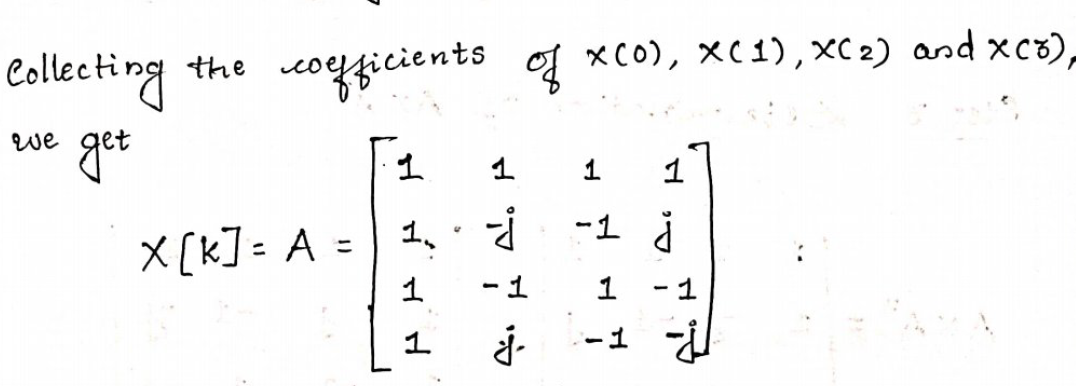 Collecting the coefficients of x(0), x(1), x(2) and x(3),
we get
X[k] = A = [ 1 1 1 1
1 -j -1 j
1 -1 1 -1
1 j -1 -j ]